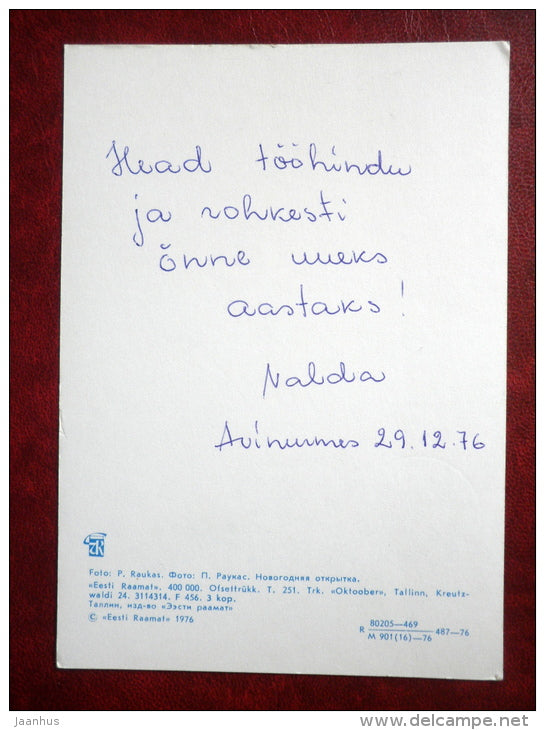 Head tööhindu
ja rohkesti
õnne uueks
aastaks!
Nalda
Avinurmes 29.12.76
Foto: P. Raukas. Фото: П. Раукас. Новогодняя открытка.
«Eesti Raamat». 400 000. Ofsettrükk. T. 251. Trk. «Oktoober», Tallinn, Kreutz-
waldi 24. 3114314. F 456. 3 kop.
Таллин, изд-во «Ээсти раамат»
© «Eesti Raamat» 1976
R 80205—469
M 901(16)—76 487—76
jaanhus
www.delcampe.net